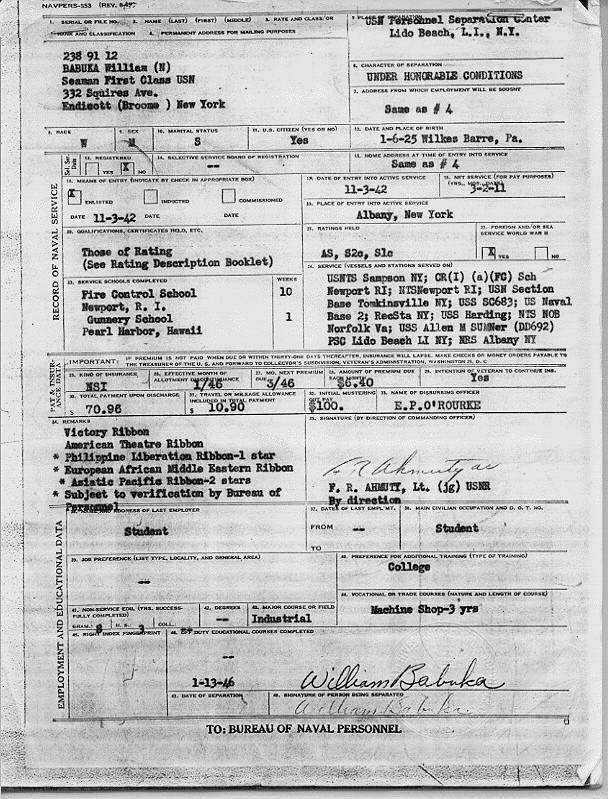 NAVPERS-553 (REV. 8-45)
1. SERIAL OR FILE NO. 2. NAME (LAST) (FIRST) (MIDDLE) 3. RATE AND CLASS OR
RANK AND CLASSIFICATION 4. PERMANENT ADDRESS FOR MAILING PURPOSES
238 91 12
BABUKA William (N)
Seaman First Class USN
332 Squires Ave.
Endicott (Broome ) New York
USN Personnel Separation Center
Lido Beach, L.I., N.Y.
6. CHARACTER OF SEPARATION
UNDER HONORABLE CONDITIONS
7. ADDRESS FROM WHICH EMPLOYMENT WILL BE SOUGHT
Same as # 4
8. RACE 9. SEX 10. MARITAL STATUS 11. U.S. CITIZEN (YES OR NO) 12. DATE AND PLACE OF BIRTH
W M S Yes 1-6-25 Wilkes Barre, Pa.
13. REGISTERED 14. SELECTIVE SERVICE BOARD OF REGISTRATION 15. HOME ADDRESS AT TIME OF ENTRY INTO SERVICE
YES X NO -- Same as # 4
RECORD OF NAVAL SERVICE
16. MEANS OF ENTRY (INDICATE BY CHECK IN APPROPRIATE BOX)
X ENLISTED INDUCTED COMMISSIONED
DATE 11-3-42 DATE DATE
18. DATE OF ENTRY INTO ACTIVE SERVICE
11-3-42
19. NET SERVICE (FOR PAY PURPOSES)
(YRS., MOS., DAYS)
3-2-11
20. PLACE OF ENTRY INTO ACTIVE SERVICE
Albany, New York
QUALIFICATIONS, CERTIFICATES HELD, ETC.
Those of Rating
(See Rating Description Booklet)
21. RATINGS HELD
AS, S2c, S1c
22. FOREIGN AND/OR SEA
SERVICE WORLD WAR II
X YES NO
23. SERVICE SCHOOLS COMPLETED WEEKS
Fire Control School 10
Newport, R. I.
Gunnery School 1
Pearl Harbor, Hawaii
24. SERVICE (VESSELS AND STATIONS SERVED ON)
USNTS Sampson NY; CR(I) (a)(FC) Sch
Newport RI; NTSNewport RI; USN Section
Base Tomkinsville NY; USS SC683; US Naval
Base 2; RecSta NY; USS Harding; NTS NOB
Norfolk Va; USS Allen M SUMNer (DD692)
PSC Lido Beach LI NY; NRS Albany NY
PAY & INSURANCE DATA
IMPORTANT: IF PREMIUM IS NOT PAID WHEN DUE OR WITHIN THIRTY-ONE DAYS THEREAFTER, INSURANCE WILL LAPSE. MAKE CHECKS OR MONEY ORDERS PAYABLE TO
THE TREASURER OF THE U.S. AND FORWARD TO COLLECTOR'S SUBDIVISION, VETERAN'S ADMINISTRATION, WASHINGTON 25, D. C
25. KIND OF INSURANCE
NSI
26. EFFECTIVE MONTH OF
ALLOTMENT DISCONTINUANCE
1/46
27. MO. NEXT PREMIUM
DUE
3/46
28. AMOUNT OF PREMIUM DUE
$6.40
29. INTENTION OF VETERAN TO CONTINUE INS.
Yes
30. TOTAL PAYMENT UPON DISCHARGE
$ 70.96
31. TRAVEL OR MILEAGE ALLOWANCE
INCLUDED IN TOTAL PAYMENT
$ 10.90
32. INITIAL MUSTERING
OUT PAY
$100.
33. NAME OF DISBURSING OFFICER
E.P.O'ROURKE
34. REMARKS
Victory Ribbon
American Theatre Ribbon
* Philippine Liberation Ribbon-1 star
* European African Middle Eastern Ribbon
* Asiatic Pacific Ribbon-2 stars
* Subject to verification by Bureau of
Personnel
35. SIGNATURE (BY DIRECTION OF COMMANDING OFFICER)
F. R. AHMUTI, Lt. (jg) USNR
By direction
EMPLOYMENT AND EDUCATIONAL DATA
NAME AND ADDRESS OF LAST EMPLOYER
Student
37. DATES OF LAST EMPL'MT.
FROM --
TO
38. MAIN CIVILIAN OCCUPATION AND D. O. T. NO.
Student
39. JOB PREFERENCE (LIST TYPE, LOCALITY, AND GENERAL AREA)
--
40. PREFERENCE FOR ADDITIONAL TRAINING (TYPE OF TRAINING)
College
41. NON-SERVICE EDU. (YRS. SUCCESSFULLY COMPLETED)
GRAM. 8 H. S. 3 COLL.
42. DEGREES
--
43. MAJOR COURSE OR FIELD
Industrial
44. VOCATIONAL OR TRADE COURSES (NATURE AND LENGTH OF COURSE)
Machine Shop-3 yrs
45. RIGHT INDEX FINGERPRINT
46. OFF DUTY EDUCATIONAL COURSES COMPLETED
--
1-13-46
William Babuka
47. DATE OF SEPARATION 48. SIGNATURE OF PERSON BEING SEPARATED
William Babuka
TO: BUREAU OF NAVAL PERSONNEL